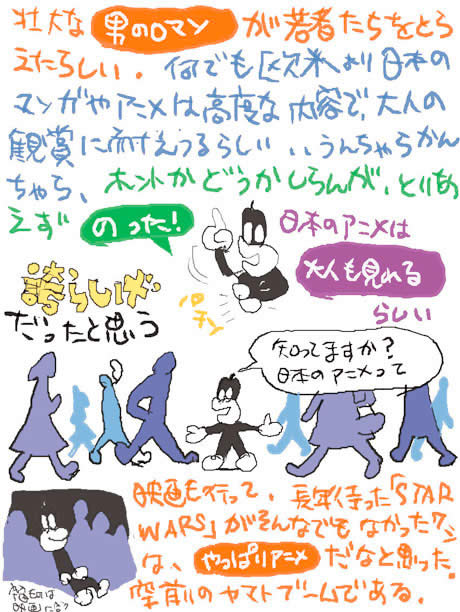 壮大な 男のロマン が若者たちをとら
えたらしい。何でも欧米より日本の
マンガやアニメは高度な内容で、大人の
観賞に耐えうるらしい、、うんちゃらかん
ちゃら、ホントかどうかしらんが、とりあ
えず のった!
日本のアニメは
大人も見れる
らしい
パチン
誇らしい
だったと思う
知ってますか?
日本のアニメって
映画も行って、長年待った「STAR
WARS」がそんなでもなかったワシ
は、やっぱりアニメ だなと思った.
空前のヤマトブームである.